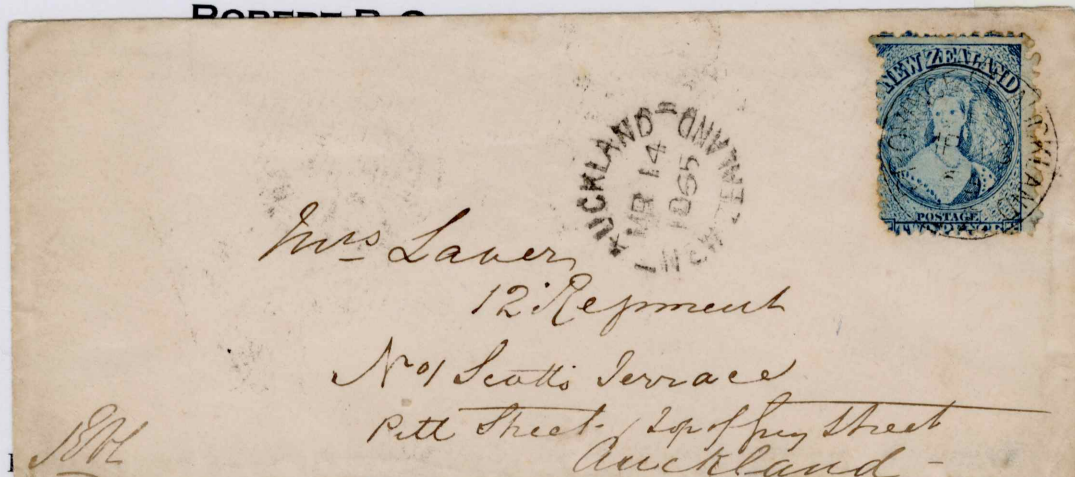 NEW ZEALAND
POSTAGE
AUCKLAND
MR 14
1865
NEW-ZEALAND
Mrs Laver
12 Regiment
No 1 Scotts Terrace
Pitt Street top of Grey Street
Auckland -